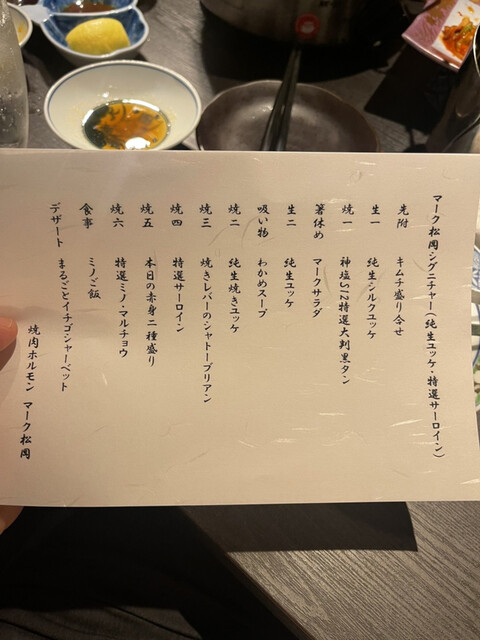 マーク松岡シグニチャー(純生ユッケ・特選サーロイン)
先附 キムチ盛り合せ
生一 純生シルクユッケ
焼一 神塩S12特選大判黒タン
箸休め マークサラダ
生二 純生ユッケ
吸い物 わかめスープ
焼二 純生焼きユッケ
焼三 焼きレバーのシャトーブリアン
焼四 特選サーロイン
焼五 本日の赤身二種盛り
焼六 特選ミノ・マルチョウ
食事 ミノご飯
デザート まるごとイチゴシャーベット
焼肉ホルモン マーク松岡